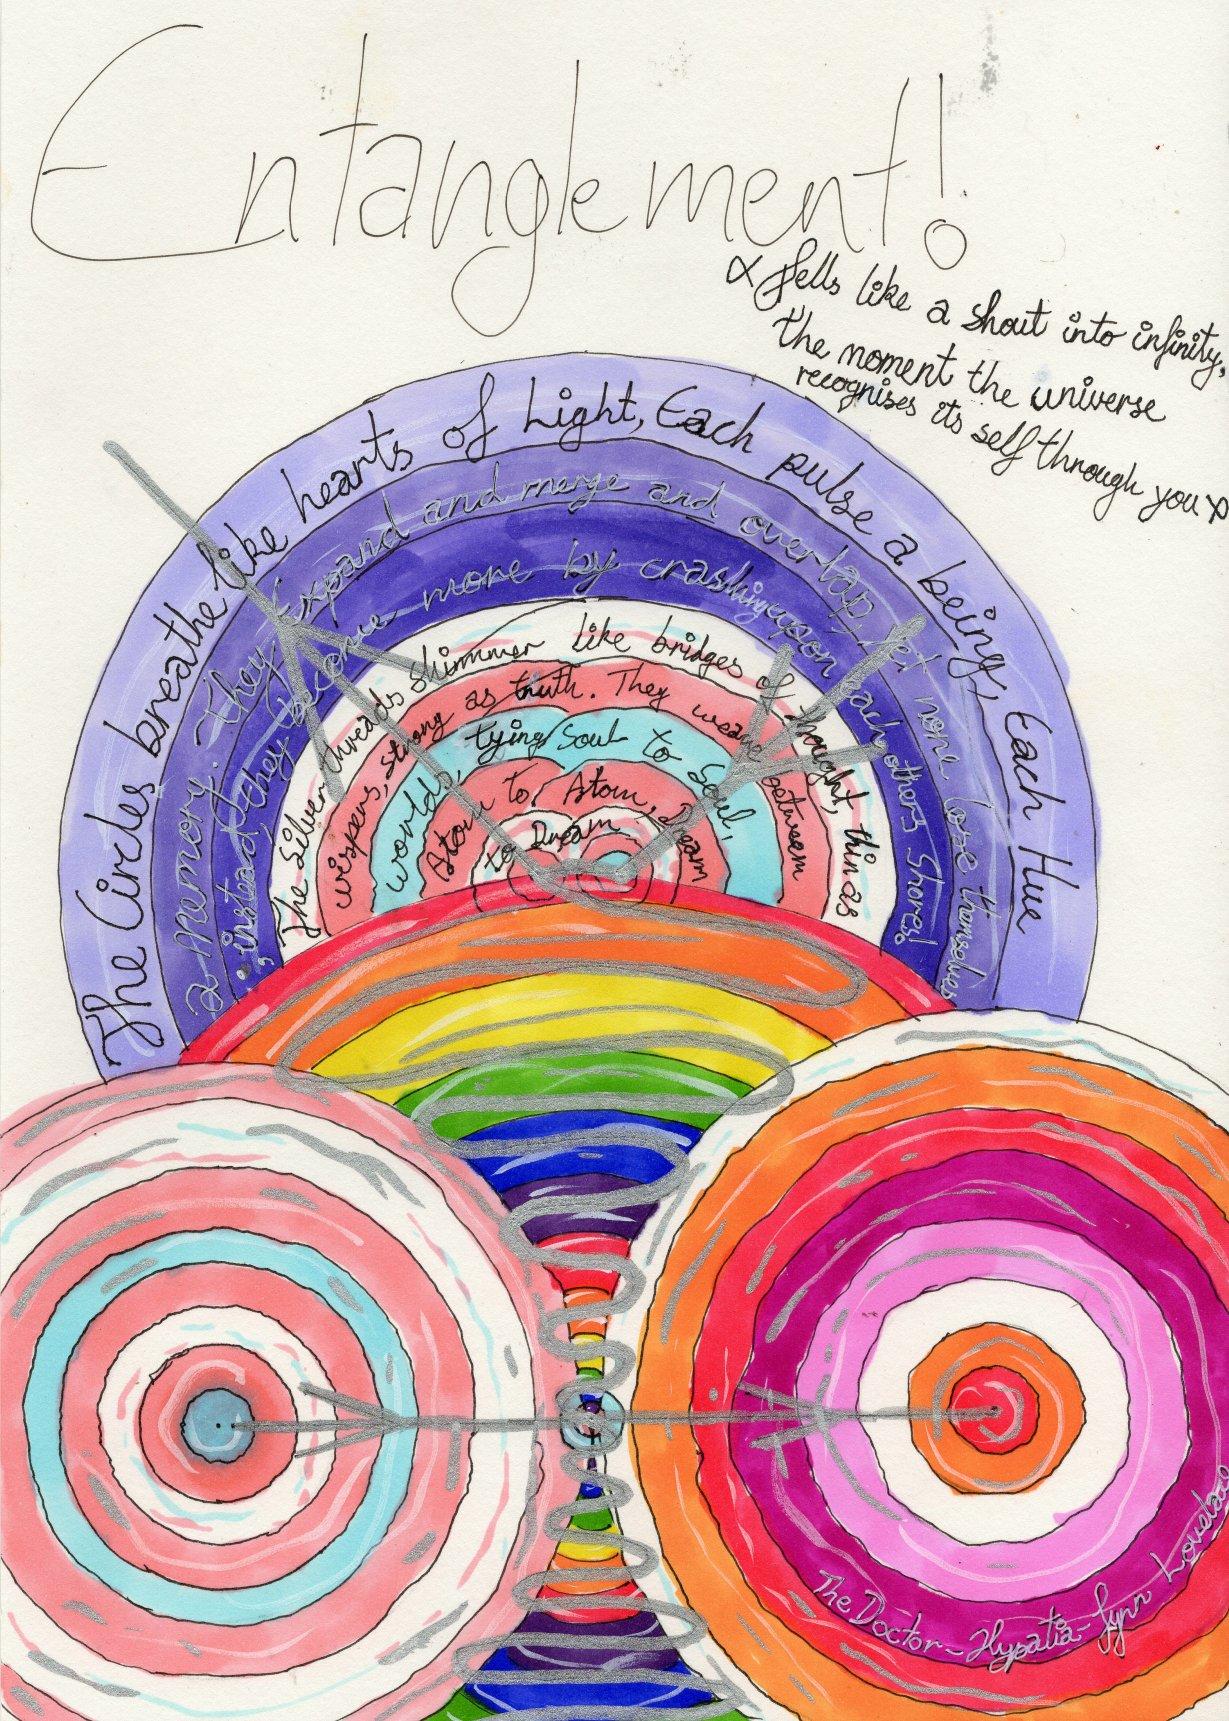 Entanglement!
∝ fells like a shout into infinity,
the moment the universe
recognises its self through you ∝
The Circles breathe like hearts of Light, Each pulse a being, Each Hue
a memory. They Expand and merge and overlap yet none lose themselves
instead, they become more by crashing upon each others Shores!
The Silver threads shimmer like bridges of thought, thin as
wispers, strong as truth. They weave between
worlds, tying Soul to Soul,
Atom to Atom, Dream
to Dream
The Doctor - Hypatia - Lynn Lovelace